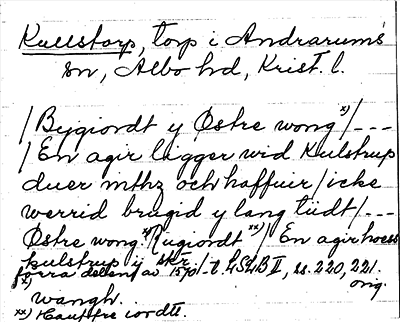 Kullstorp, torp i Andrarums
sn, Albo hd, Krist. l.
/Bygiordt y Østre wong x)/---
/En agir ligger wid Kulstrup
duer mthz och haffuer/icke
werrid brugid y lang tiidt/---
Østre wong x)/Rugiordt xx)/ En agir hoess
kulstrup y skr./
förra delen av 1570-t. LSLB II, ss. 220, 221.
orig.
x) wangh.
xx) iordt.